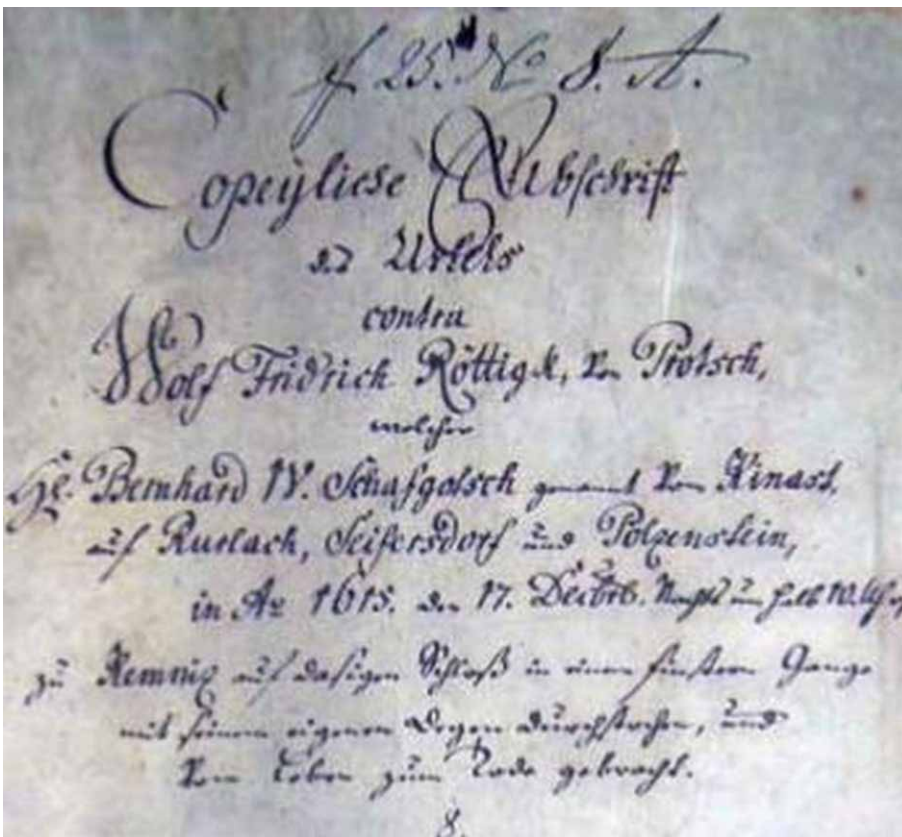 f 25. No 8. A.
Copeyliche Abschrift
des Urtels
contra
Wolf Fridrich Röttigk, von Protsch,
welcher
Hl. Bernhard IV. Schafgotsch genannt von Kinast,
auf Rurlach, Seifersdorf und Polzenstein,
in Ao 1615. den 17. Decbrb. Nachts um halb 10. Uhr
zu Kemniz auf dasigen Schloß in einem finstern Gange
mit seinem eigenen Degen durchstochen, und
vom Leben zum Tode gebracht.
8.